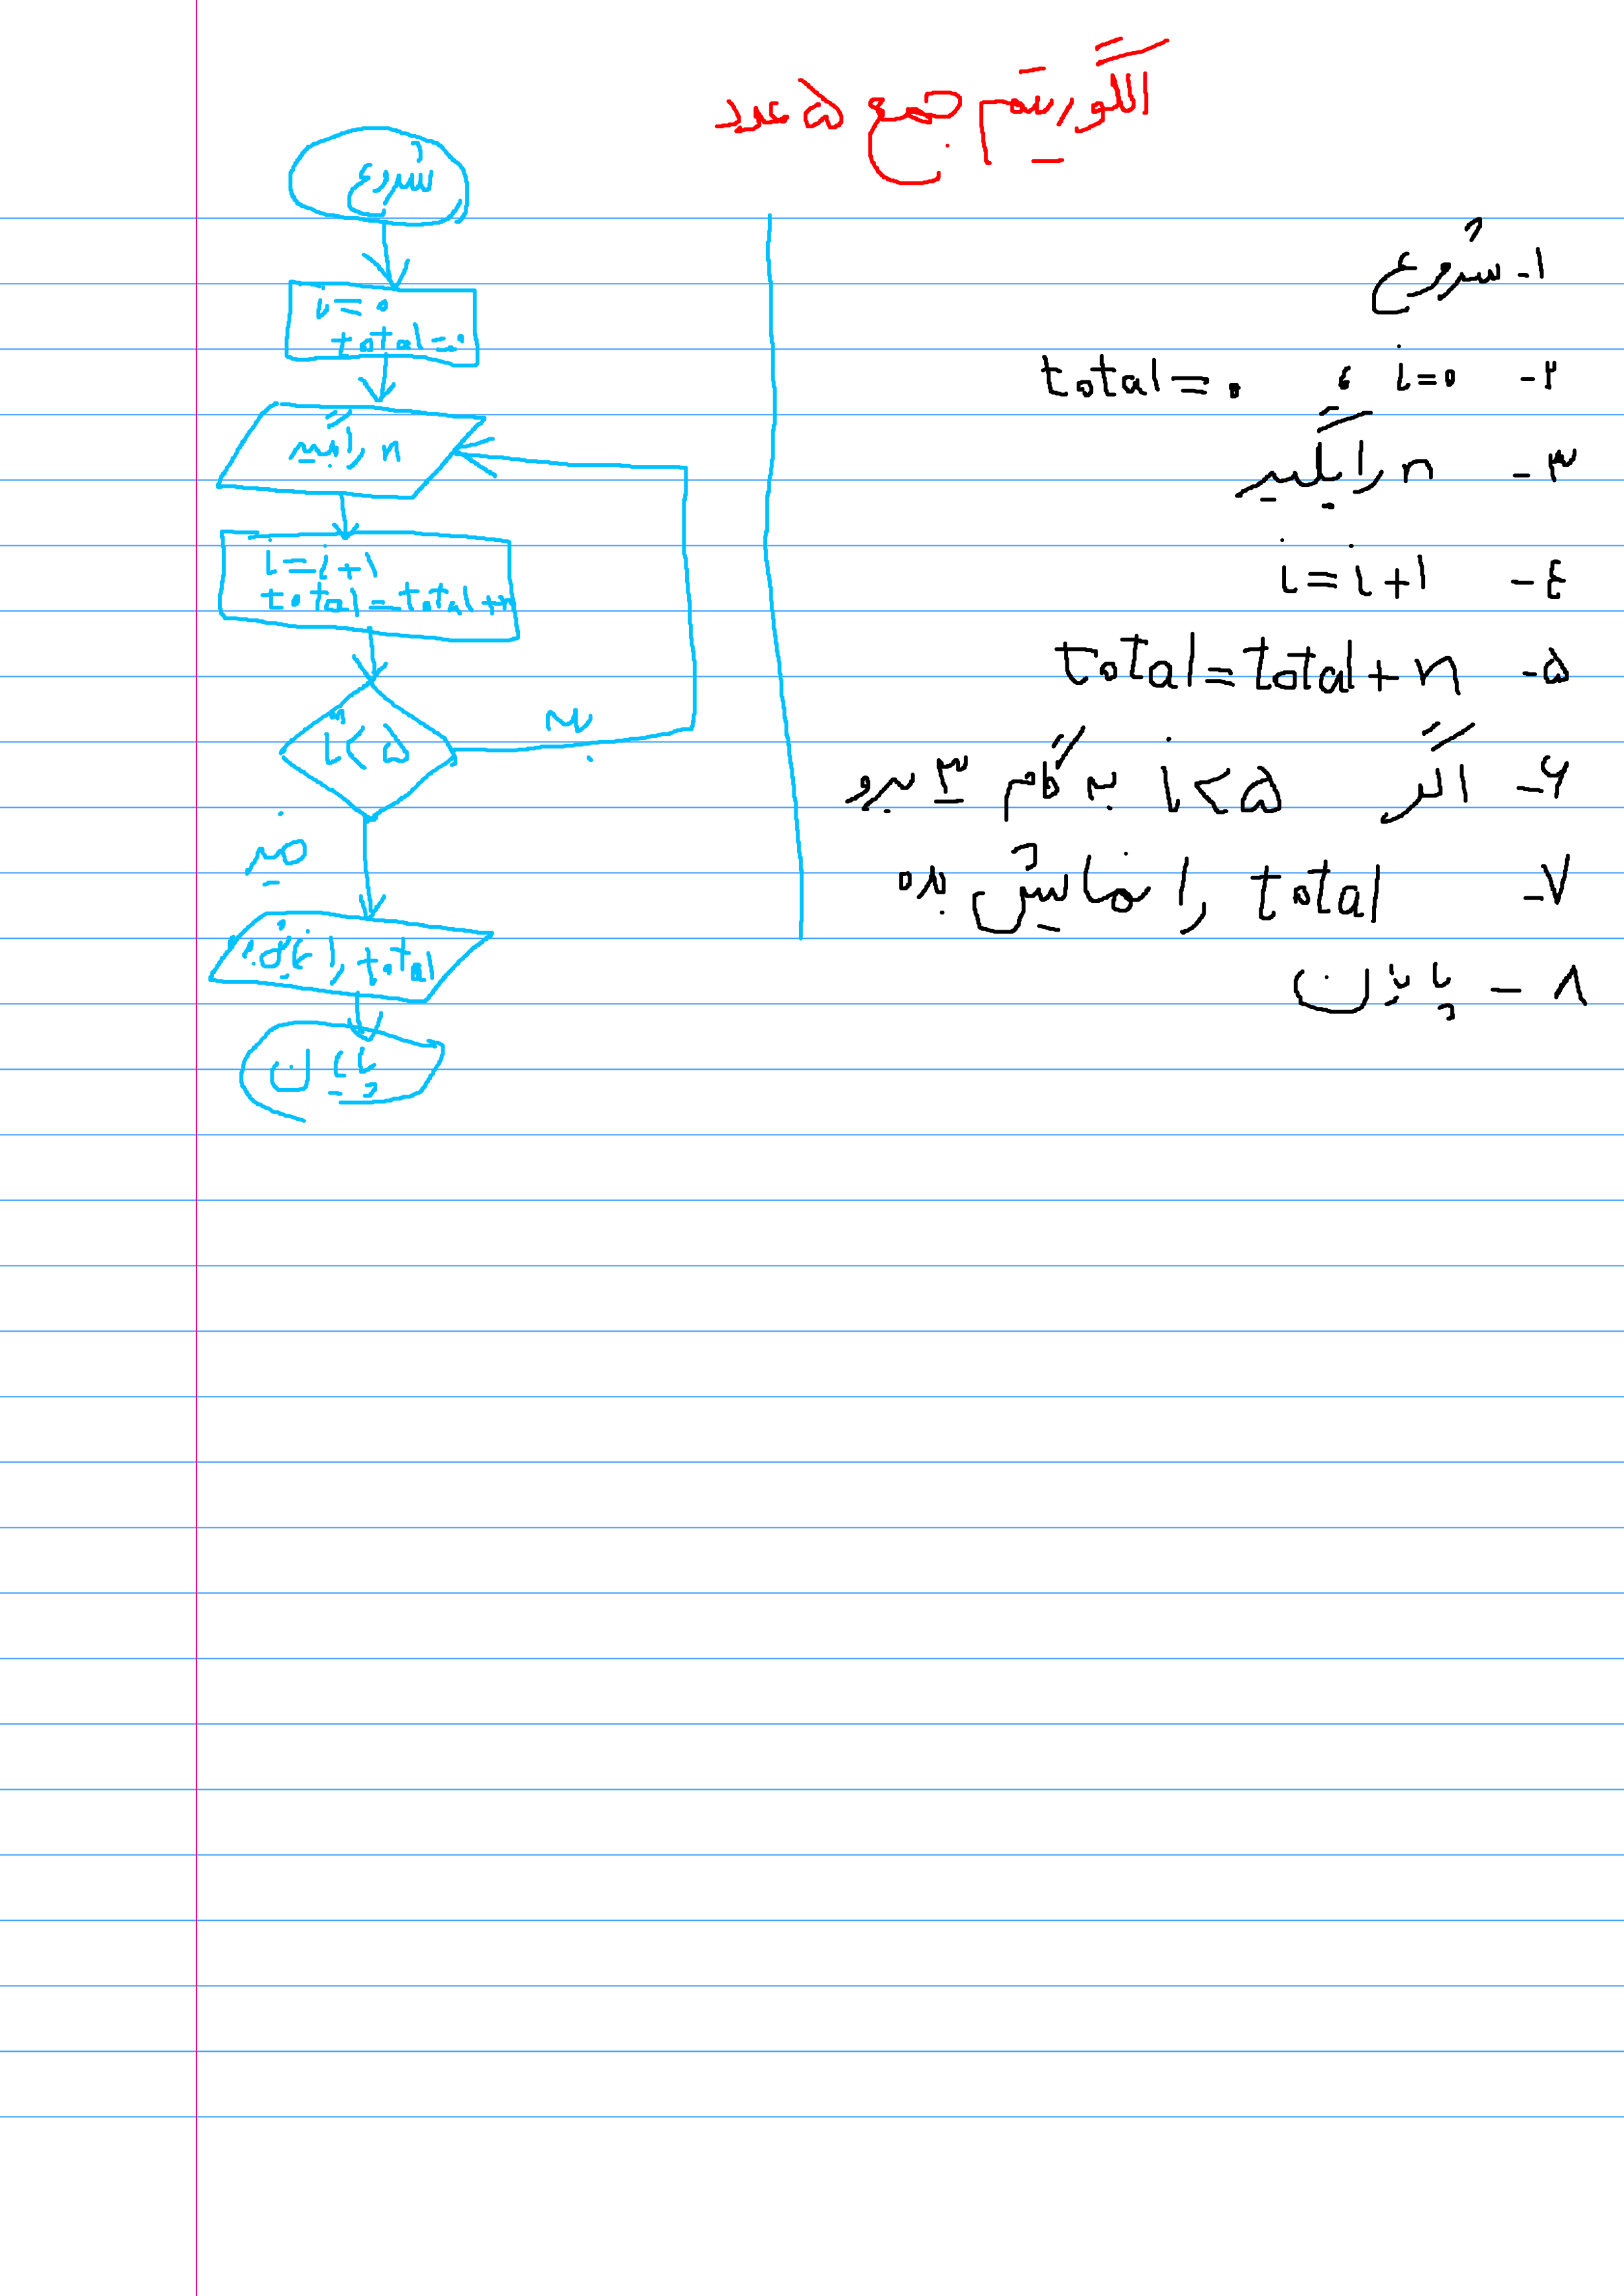 الگوریتم جمع ۵ عدد
۱- شروع
۲- i=0 ، total=0
۳- n را بگیر
٤- i=i+1
۵- total=total+n
۶- اگر i<۵ به گام ۳ برو
۷- total را نمایش بده
۸- پایان
شروع
i=0
total=0
n را بگیر
i=i+1
total=total+n
i<۵
بله
خیر
total را
پایان